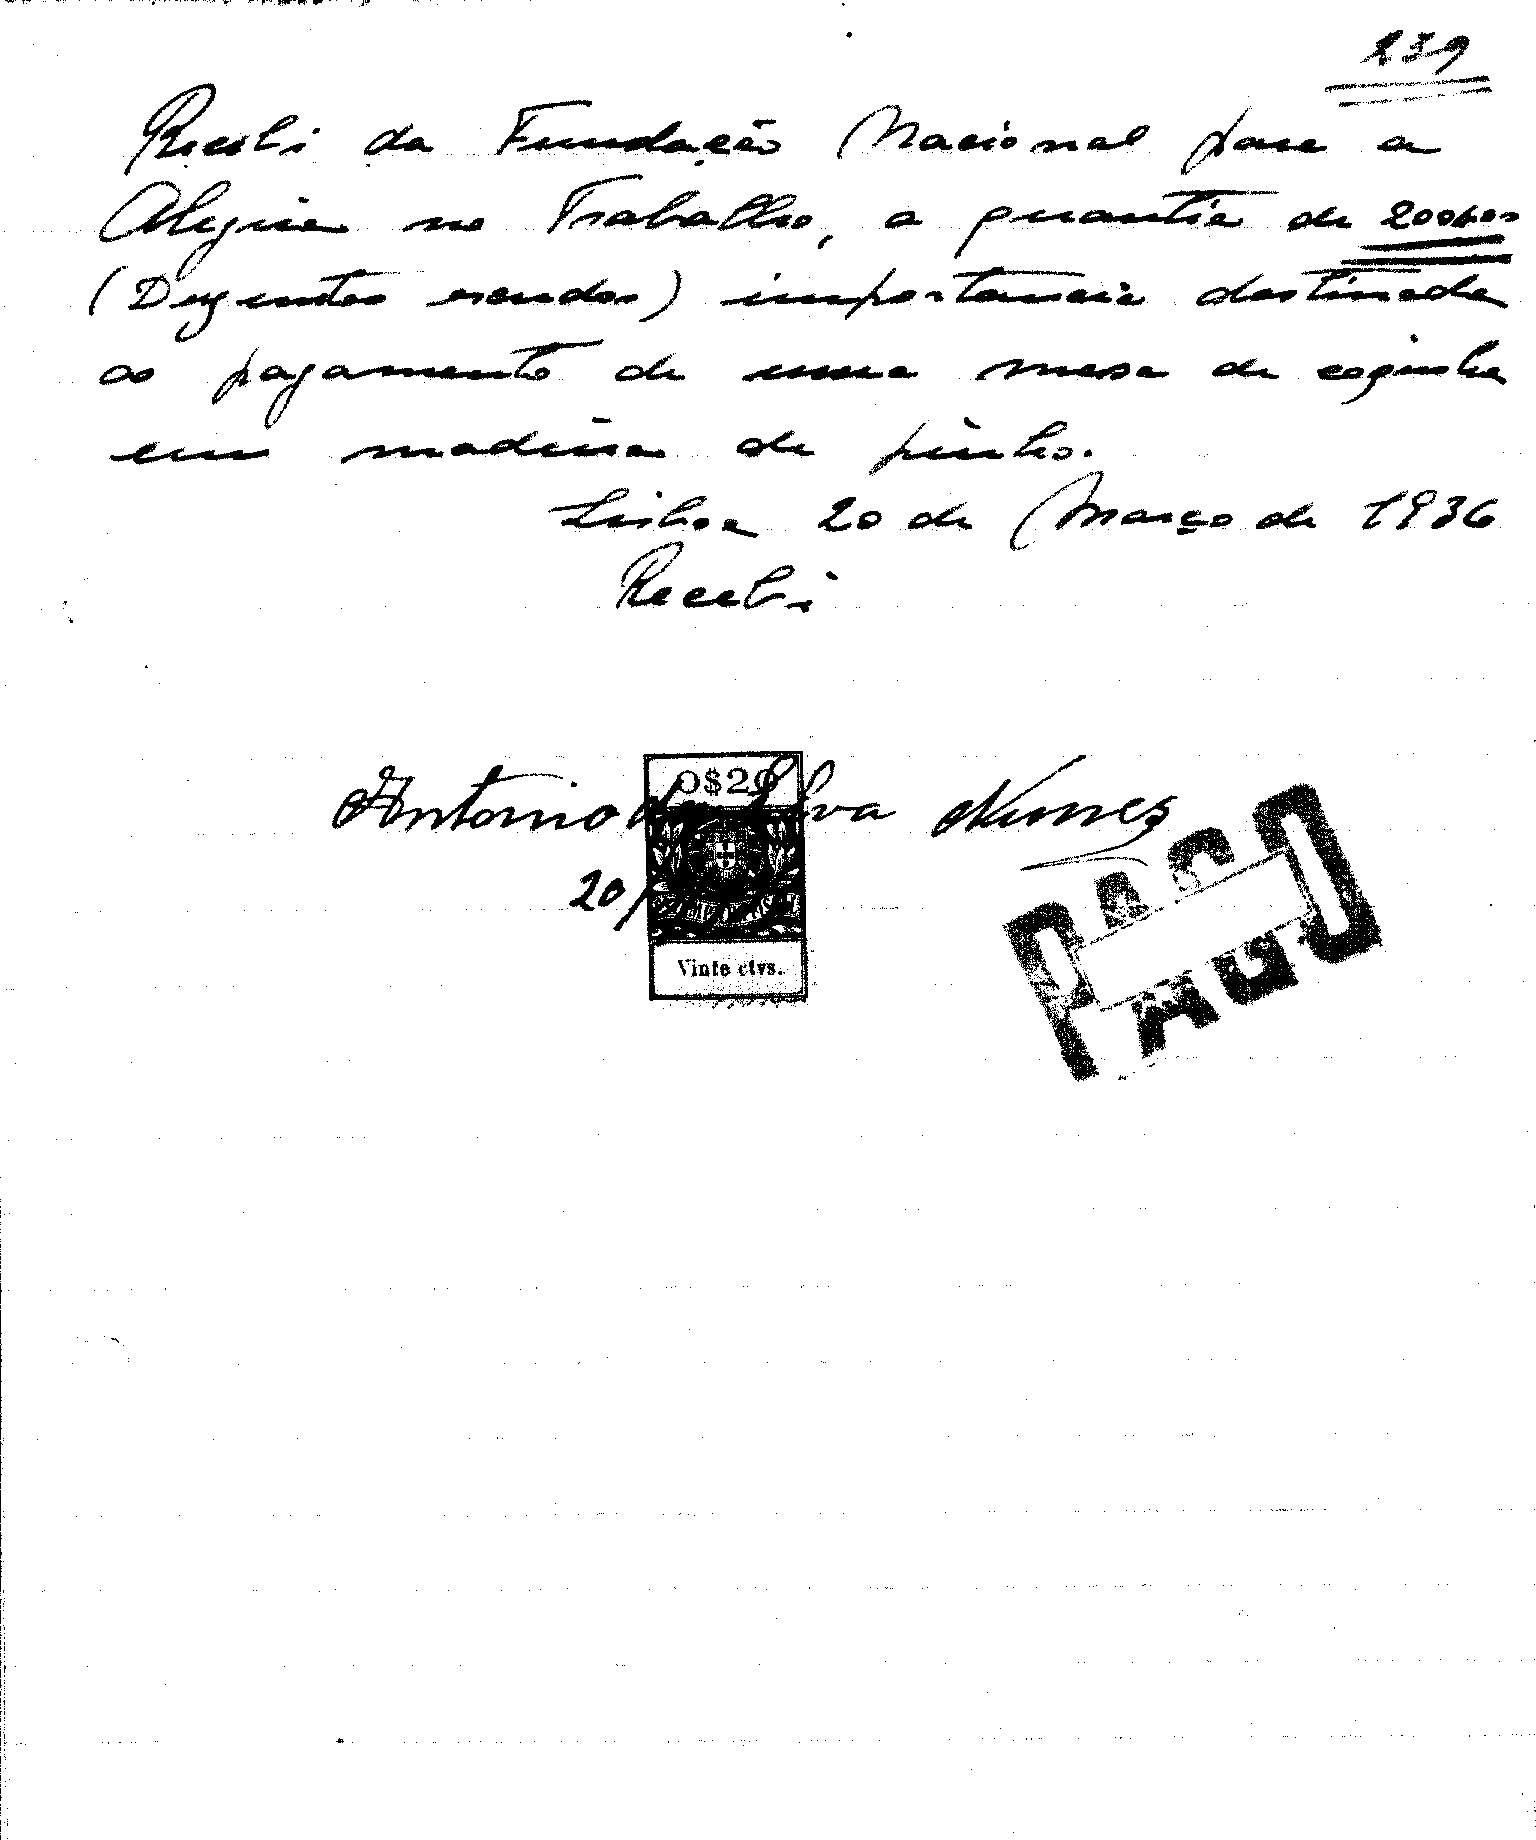 239
Recebi da Fundação Nacional para a
Alegria no Trabalho, a quantia de 200$00
(Duzentos escudos) importancia destinada
ao pagamento de uma mesa de cozinha
em madeira de pinho.
Lisboa 20 de Março de 1936
Recebi
0$20
Antonio da Silva Nunes
20/
Vinte ctvs.
PAGO